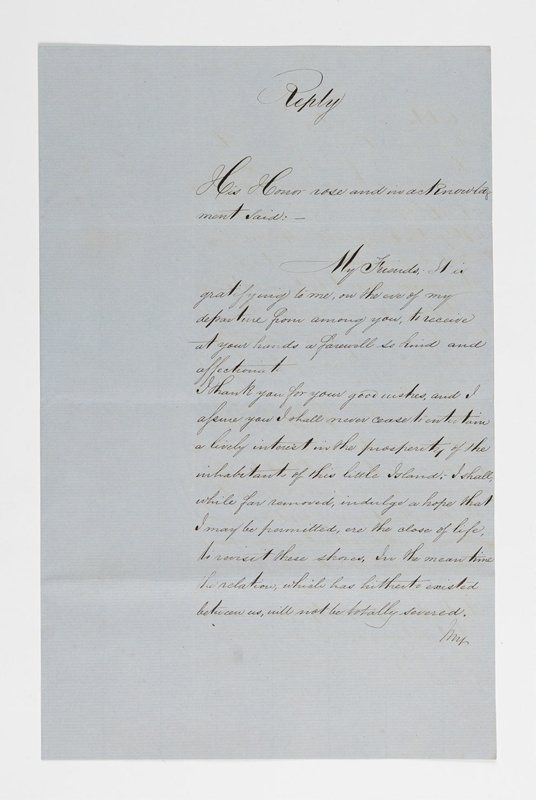 Reply
His Honor rose and in acknowledg-
ment said: —
My Friends, It is
gratifying to me, on the eve of my
departure from among you, to receive
at your hands a farewell so kind and
affectionate
I thank you for your good wishes, and I
assure you I shall never cease to entertain
a lively interest in the prosperity of the
inhabitants of this little Island; I shall,
while far removed, indulge a hope that
I may be permitted, ere the close of life,
to revisit these shores, In the mean time
the relation, which has hitherto existed
between us, will not be totally severed.
My